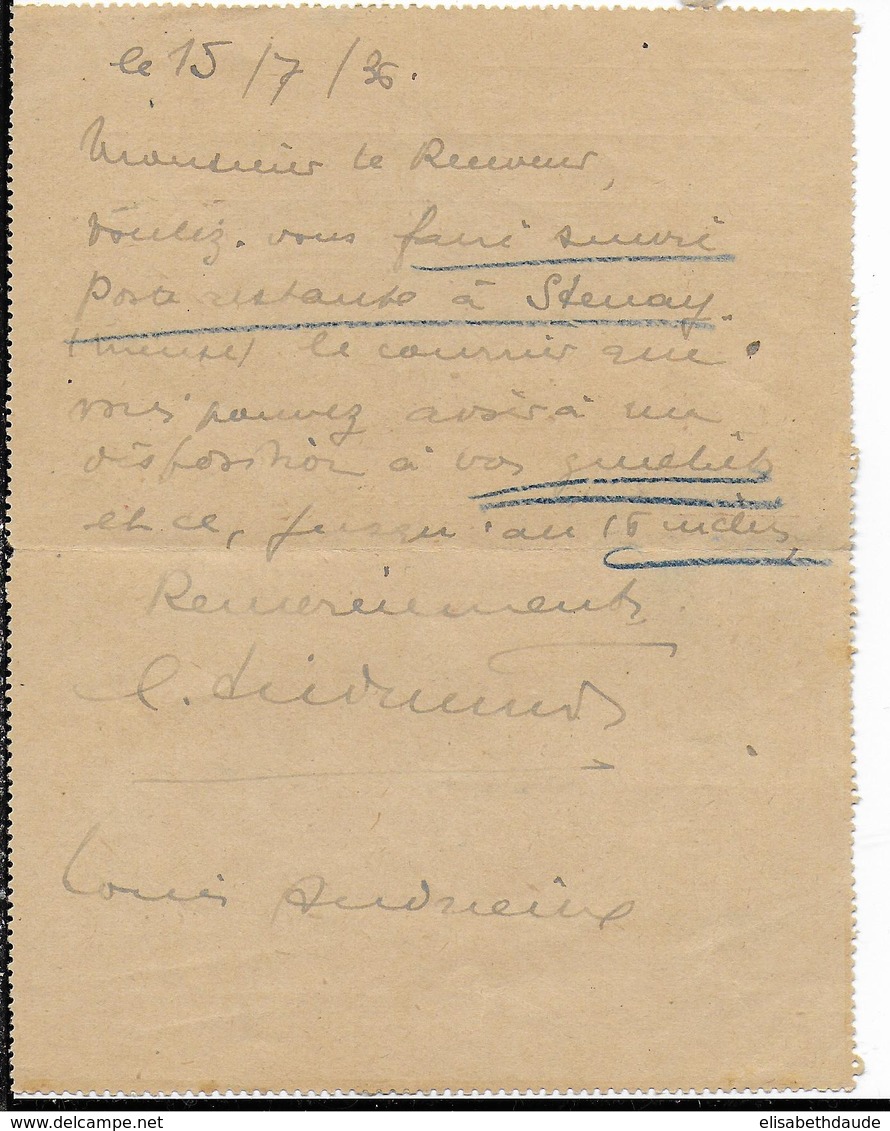 le 15/7/36.
Monsieur le Receveur,
Voulez-vous faire suivre
Poste restante à Stenay.
(Meuse) le courrier que
vous pouvez avoir à ma
disposition à vos guichets
et ce, jusqu'au inclus
Remerciements
L. Andrieux
Louis Andrieux
elisabethdaude